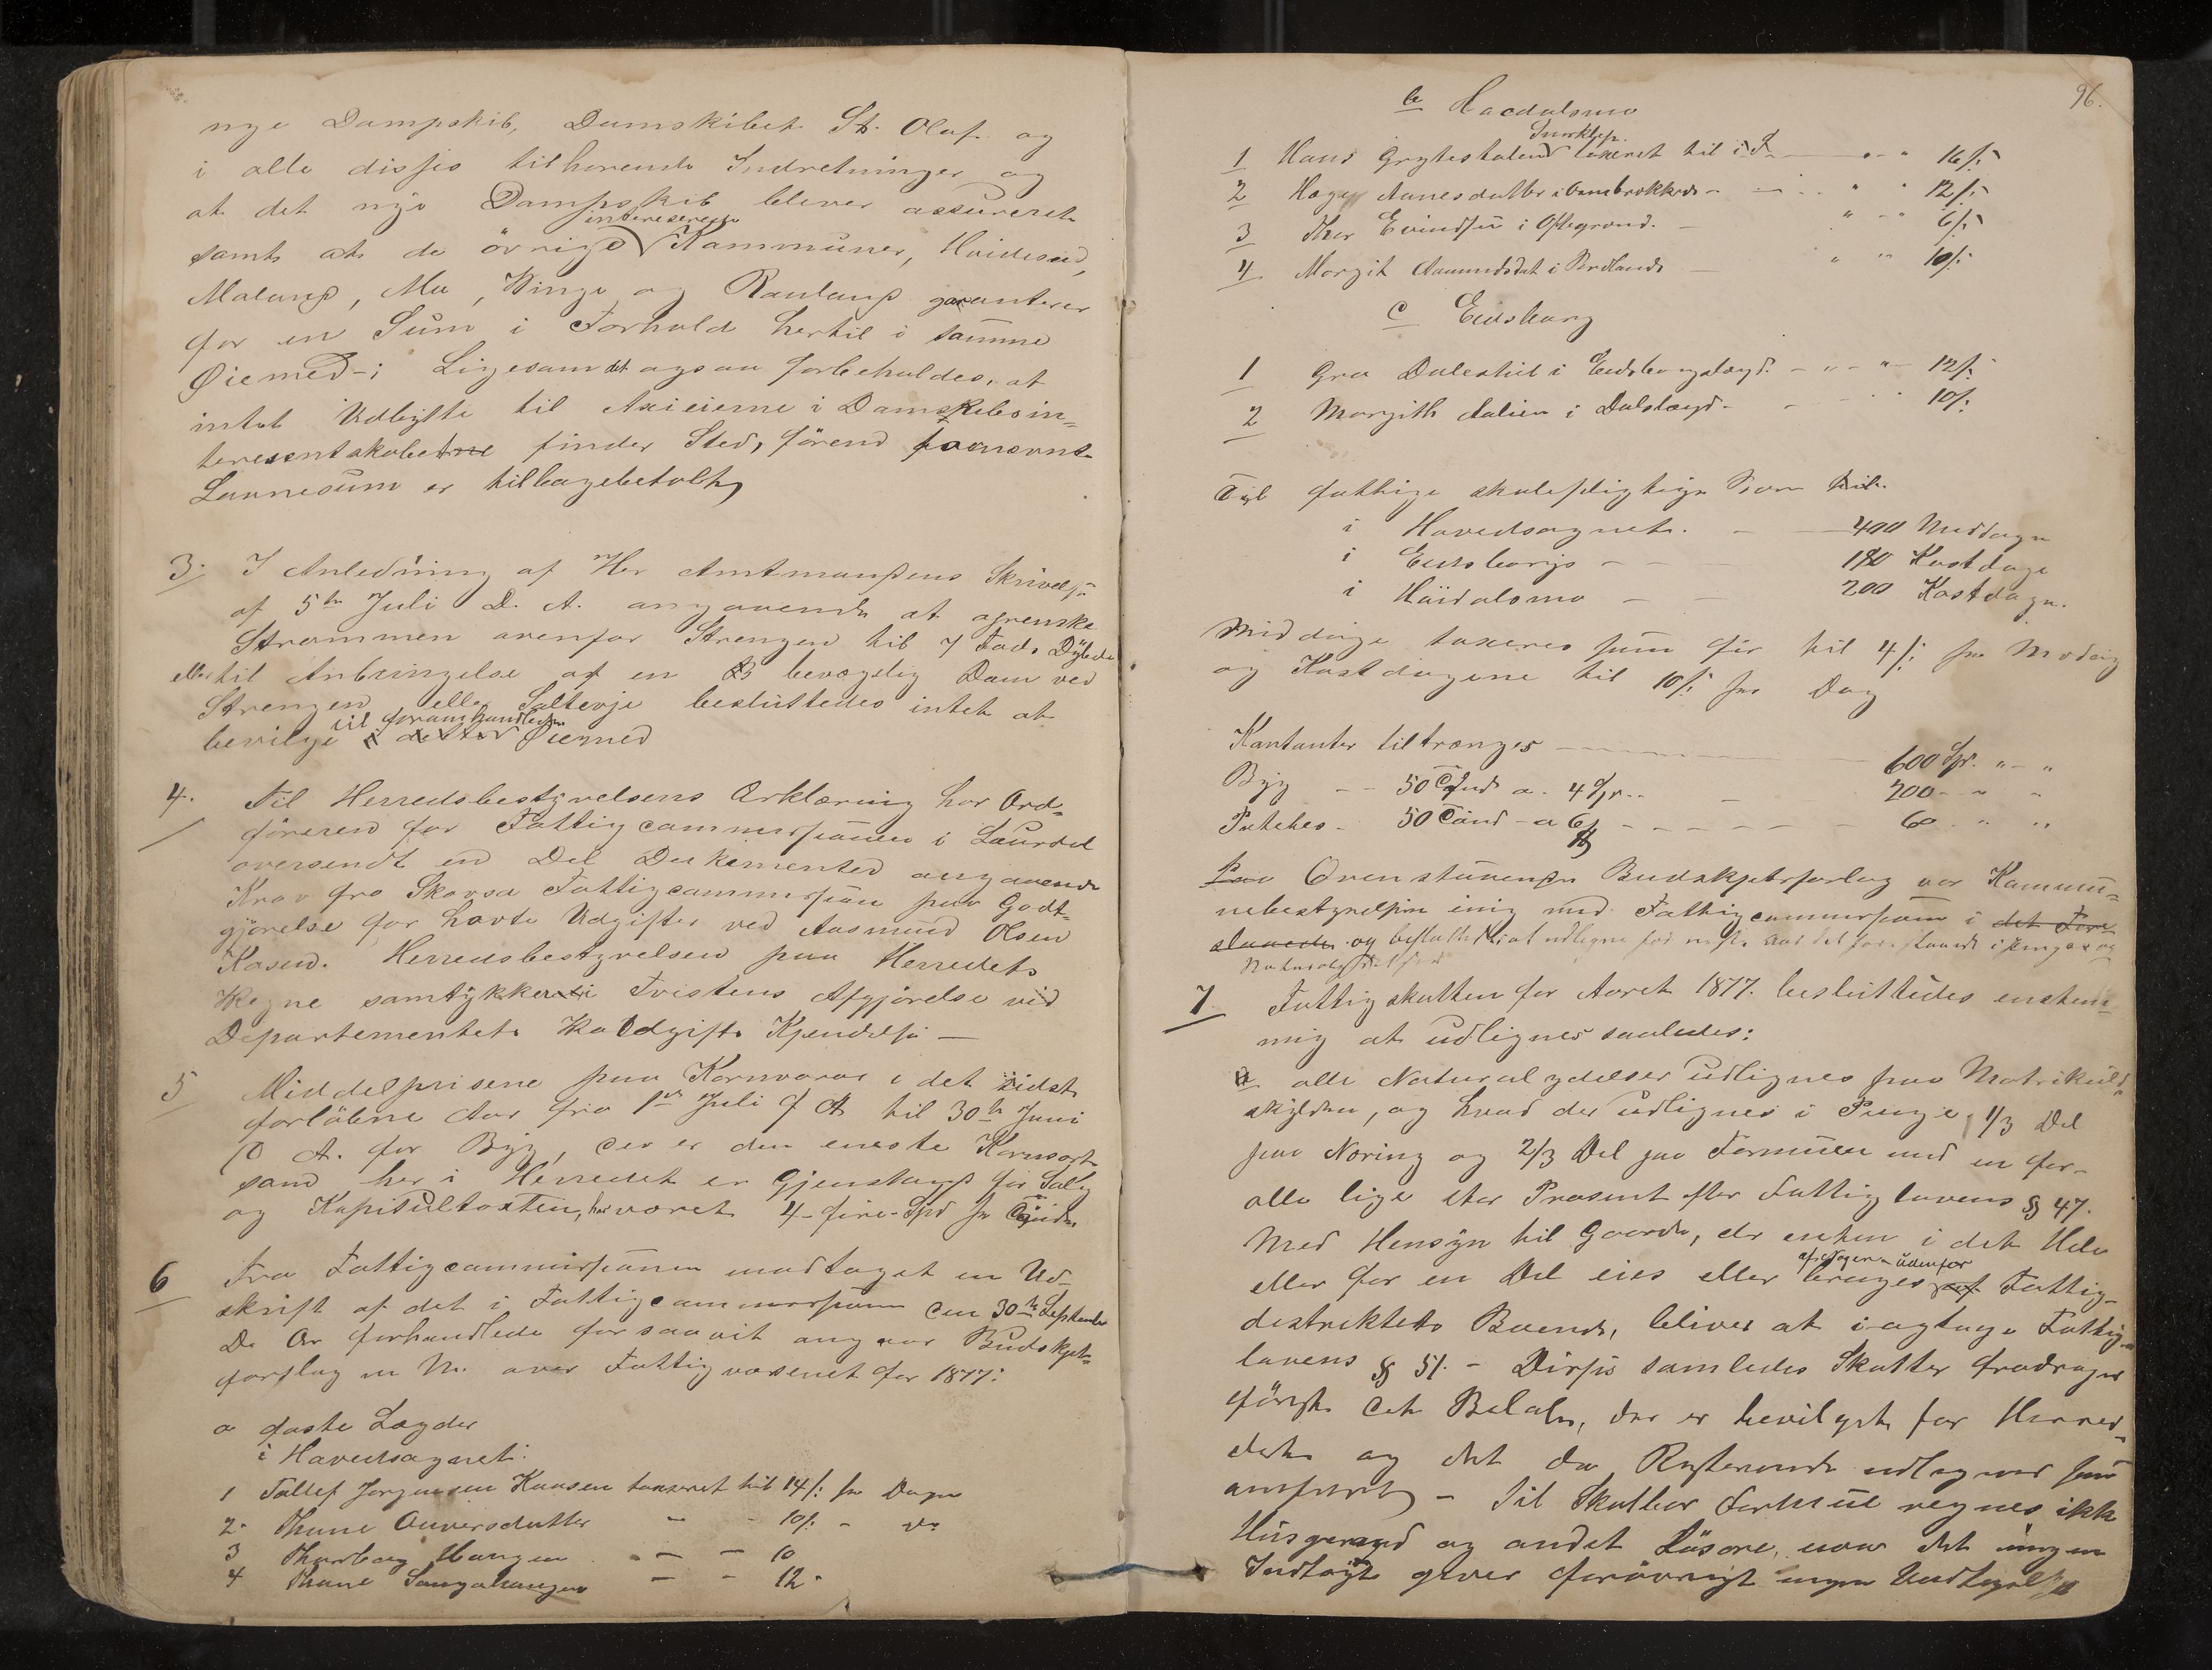 nye Dampskib, Damskibet St. Olaf og
i alle disse tilhørende Indretninger og
at det nye Dampskib bliver assureret
interesserede
samt at de øvrige Kommuner, Hvideseid,
Moland, Mo, Vinje og Rauland garanterer
for en Sum i Forhold hertil i samme
Øiemed -; Ligesom det ogsaa forbeholdes, at
intet Udbytte til Axieierne i Damskibsin-
teressentskabet finder Sted, førend fornævnte
Laanesum er tilbagebetalt
3. I Anledning af Her Amtmandens Skrivelse
af 5te Juli D. A. angaaende at oprenske
Strømmen ovenfor Strengen til 7 Fods Dybde
eller til Anbringelse af en bevægelig Dam ved
Strengen eller besluttedes intet at
til foranhandlede
bevilge i dette Øiemed
4. Til Herredsbestyrelsens Erklæring har Ord-
føreren for Fattigcommissionen i Laurdal
oversendt en Del Dokumenter angaaende
Krav fra Skafsaa Fattigcommission paa Godt-
gjørelse for havte Udgifter ved Aasmund Olsen
Kosen. Herredsbestyrelsen paa Herredets
Vegne samtykker i Tvistens Afgjørelse ved
Departementets Voldgifts Kjendelse —
5 Middelprisene paa Kornvarer i det sidst
forløbne Aar fra 1ste Juli f A til 30te Juni
D A. for Byg, der er den eneste Kornsort
som her i Herredet er Gjenstand for Salg
og Kapitultaxten, har været 4-fire-Spd pr Tønde
6 Fra Fattigcommissionen modtaget en Ud-
skrift af det i Fattigcommissionen den 30te September
D. Ar forhandlede forsaavit angaar Budskjet-
forslag m M. over Fattigvæsenet for 1877:
a faste Lægder
i Hovedsognet.
1 Tallef Jørgensen Kaasen taxeret til 14 s: pr Dagen
2. Thone Anversdatter — - 10 s: - do
3 Thorborg Haugen — — 10
4 Thone — - 12 -
96.
b Høidalsmo
1 Hans taxeret til — " - " 16 s:
2 Hæge Aanesdatter i - " " 12 s:
3 Thor Eivindsen i " - " 6 s:
4 Margit Aamundsdat i — " " 10 s:
c Eidsborg
1 Gro Dalestul i Eidsborglægd. - " - " 12 s:
2 Margith i Dalslægd - 10 s:
Til fattige skolepligtige Børn
i Hovedsognet. — 400 Middage
i Eidsborg - - - 180 Kostdage
i Høidalsmo - - 200 Kostdage.
Middage taxeres som før til 4 s: pr Middag
og Kostdagene til 10 s: pr Dag
Kontanter tiltrænges — 600 Spd. " - "
Byg - - 50 Tønd a 4 Spd - 200 - " "
Poteter - 50 Tønd - a 6 - - - - - 60 - " "
Paa Ovenstaaende Budskjetforslag var Kommu-
nebestyrelsen enig med Fattigcommissionen i det Fore-
slaaede og besluttede at udligne for neste Aar det foreslaaede i penge og
Naturalydelser
7 Fattigskatten for Aaret 1877. besluttedes enstem-
mig at udlignes saaledes:
a alle Naturalydelser udlignes paa Matrikul-
skylden, og hvad der udlignes i Penge 1/3 Del
paa Næring og 2/3 Del paa Formuen med en for
alle lige stor Prosent efter Fattiglovens § 47.
Med Hensyn til Gaarde, der enten i det Hele
af Nogen udenfor
eller for en Del eies eller bruges af Fattig-
destriktets Boende, bliver at iagttage Fattig-
lovens § 51. - Disse samledes Skatter fradrages
først det Beløb, der er bevilget for Herre-
det og det da Resterende udlignes som
anført - Til Skatbar Formue regnes ikke
Husgeraad og andet Løsøre, naar det ingen
Indtægt giver forøvrigt ingen Undtagelse